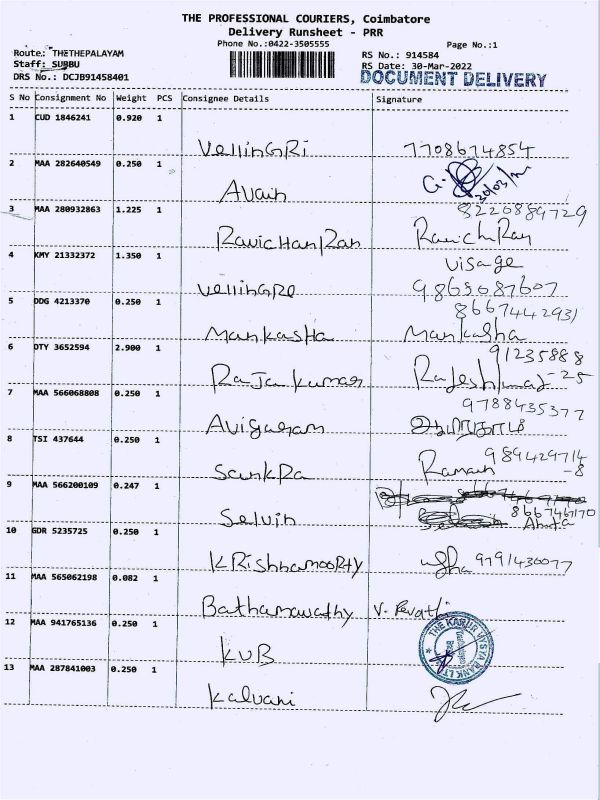 THE PROFESSIONAL COURIERS, Coimbatore
Delivery Runsheet - PRR
Phone No.:0422-3505555
Page No.:1
Route: THETHEPALAYAM
Staff: SUBBU
DRS No.: DCJB91458401
RS No.: 914584
RS Date: 30-Mar-2022
DOCUMENT DELIVERY
S No Consignment No Weight PCS Consignee Details Signature
1 CUD 1846241 0.920 1
VellinGRi 7708674854
2 MAA 282640549 0.250 1
Avain G. 30/03/
3 MAA 280932863 1.225 1
8220889729
RavicHanRan RavichRan
4 KMY 21332372 1.350 1
visage
VellinGRe 9865087607
5 DDG 4213370 0.250 1
8667442931
Mankasha Mankasha
6 DTY 3652594 2.900 1
91235888
Rajakumar -25
7 MAA 566068808 0.250 1
9788435377
Avigaram
8 TSI 437644 0.250 1
989429714
SankRa Raman -8
9 MAA 566200109 0.247 1
8667467170
Selvin
10 GDR 5235725 0.250 1
KRishnamooRty 9791430077
11 MAA 565062198 0.082 1
Bathamawathy V. Revathi
12 MAA 941765136 0.250 1
KVB
THE KARUR VYSYA BANK LTD
13 MAA 287841003 0.250 1
Kalvani